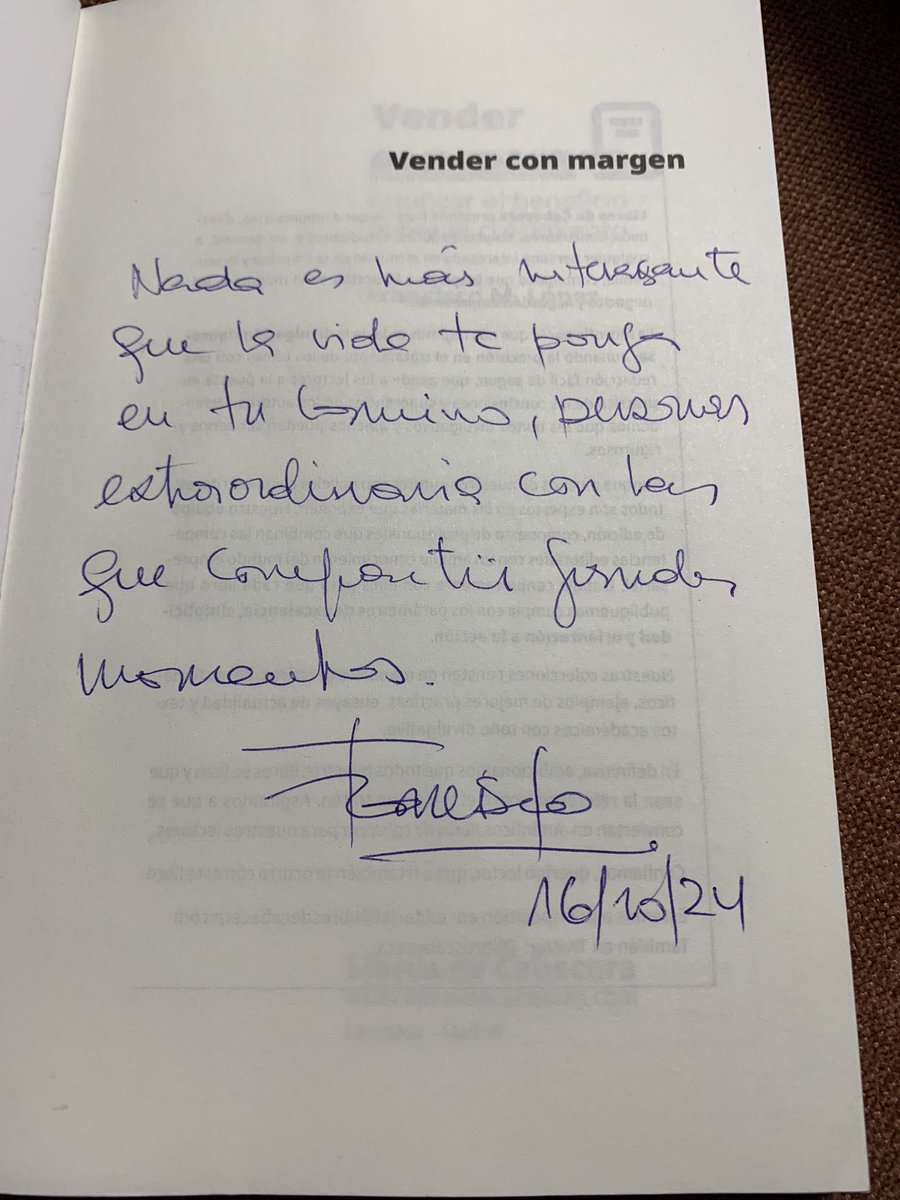 Vender con margen
Nada es más interesante
que la vida te ponga
en tu camino, personas
extraordinaria con las
que compartir grandes
momentos.
16/10/24